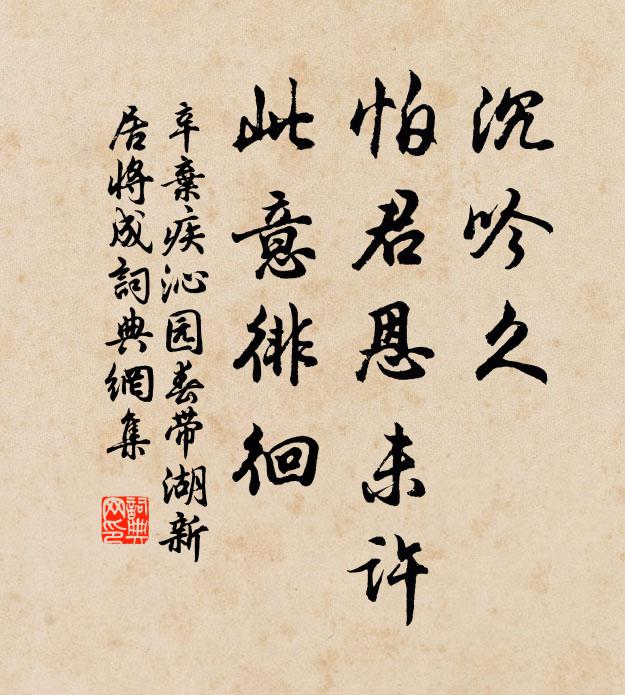 沉吟久
怕君恩未许
此意徘徊
辛棄疾沁园春带湖新
居将成詞典網集
詞典网印